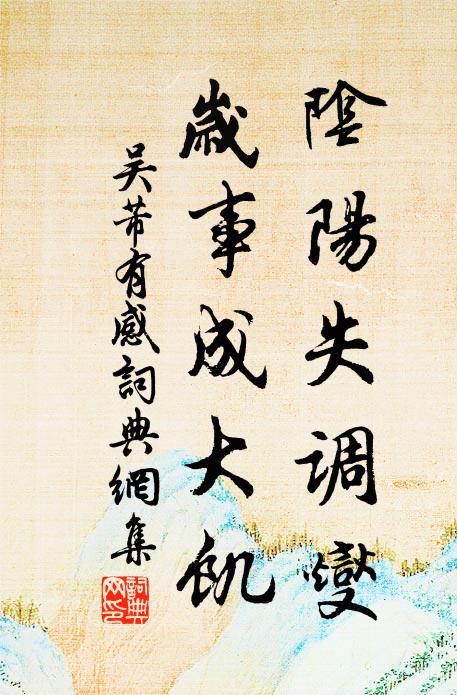 陰陽失調燮
歲事成大飢
吳芾有感詞典網集
詞典网印